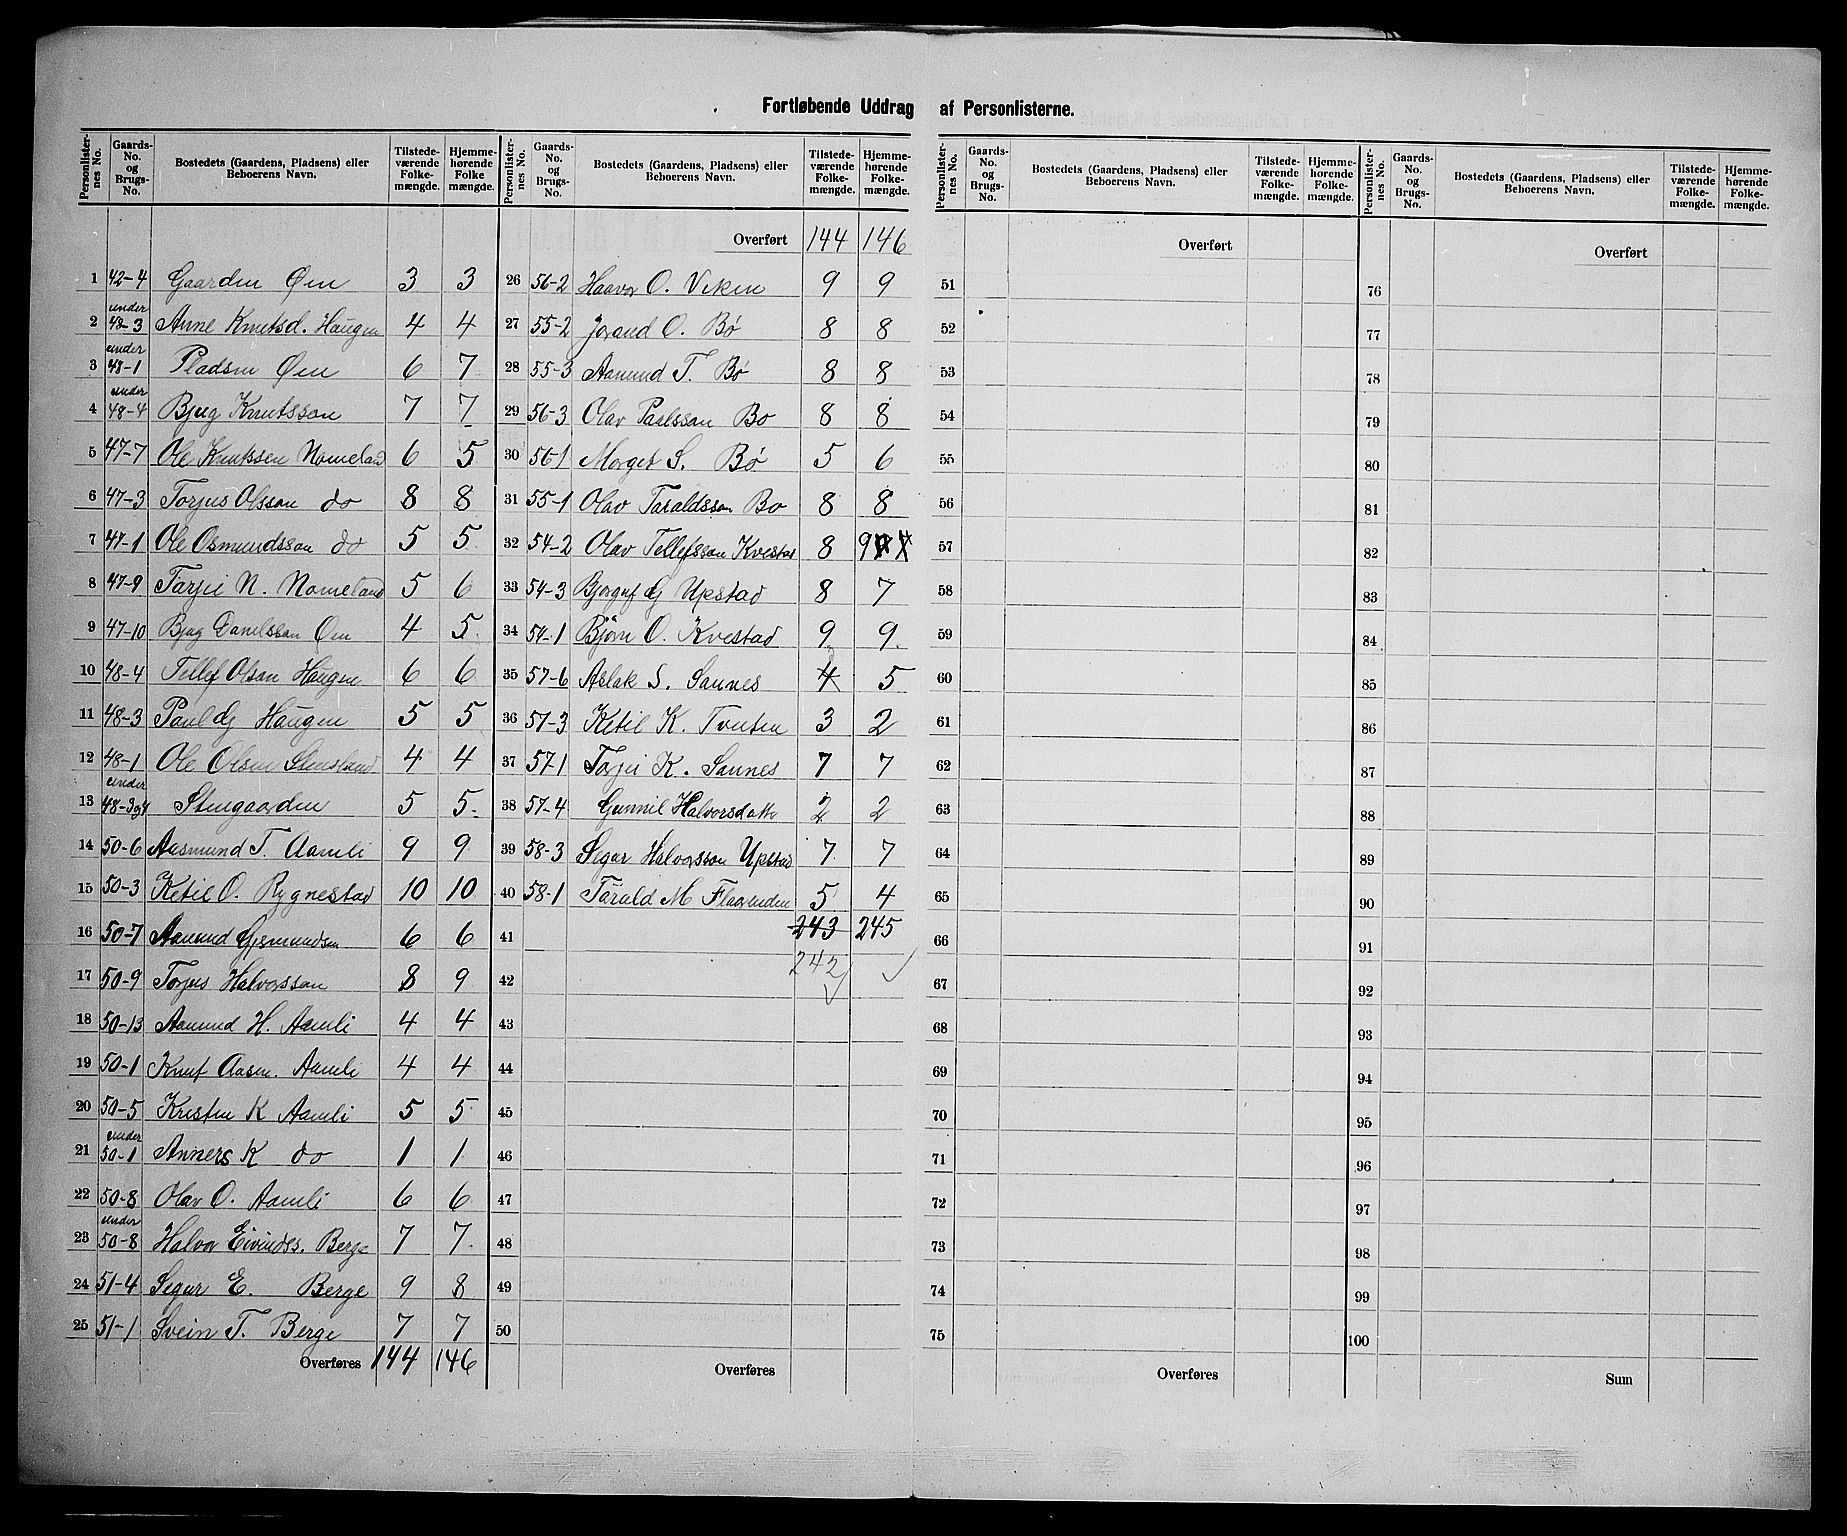 Fortløbende Uddrag af Personlisterne.
Personlisternes No. Gaards-No. og Brugs-No. Bostedets (Gaardens, Pladsens) eller Beboerens Navn. Tilstedeværende Folkemængde. Hjemmehørende Folkemængde.
1 42-4 Gaarden Øen 3 3
2 under 48-3 Anne Knutsd. Haugen 4 4
3 under 48-1 Pladsen Øen 6 7
4 under 48-4 Bjug Knutsson 7 7
5 47-7 Ole Knutssen Nomeland 6 5
6 47-3 Torjus Olsson do 8 8
7 47-1 Ole Osmundsson do 5 5
8 47-9 Tarjei N. Nomeland 5 6
9 47-10 Bjug Danielsson Øen 4 5
10 48-4 Tellef Olson Haugen 6 6
11 48-3 Paul G Haugen 5 5
12 48-1 Ole Olsen Stensland 4 4
13 under 48-3og4 Stengaarden 5 5
14 50-6 Aasmund T. Aamli 9 9
15 50-3 Ketil O. Rygnestad 10 10
16 50-7 Aamund Gjermundsen 6 6
17 50-9 Torjus Halvorsson 8 9
18 50-13 Aamund H. Aamli 4 4
19 50-1 Knut Aasm. Aamli 4 4
20 50-5 Kristen K Aamli 5 5
21 under 50-1 Anners K do 1 1
22 50-8 Olav O. Aamli 6 6
23 under 50-8 Halvor Eivindss. Berge 7 7
24 51-4 Segur E. Berge 9 8
25 51-1 Svein T. Berge 7 7
Overføres 144 146
Personlisternes No. Gaards-No. og Brugs-No. Bostedets (Gaardens, Pladsens) eller Beboerens Navn. Tilstedeværende Folkemængde. Hjemmehørende Folkemængde.
Overført 144 146
26 56-2 Haavor O. Viken 9 9
27 55-2 Jorand O. Bø 8 8
28 55-3 Aamund T. Bø 8 8
29 56-3 Olav Paalsson Bø 8 8
30 56-1 Morget S. Bø 5 6
31 55-1 Olav Taraldsson Bø 8 8
32 54-2 Olav Tellefsson Kvestad 8 9
33 54-3 Bjorguf G Upstad 8 7
34 54-1 Bjørn O. Kvestad 9 9
35 57-6 Aslak S. Sannes 4 3 5
36 57-3 Ketil K. Tveiten 3 2
37 57-1 Torjei K. Sannes 7 7
38 57-4 Gunnil Halvorsdatter 2 2
39 58-3 Segur Halvorsson Upstad 7 7
40 58-1 Tarald M Flaarenden 5 4
41 243 245
42 242
43
44
45
46
47
48
49
50
Overføres
Personlisternes No. Gaards-No. og Brugs-No. Bostedets (Gaardens, Pladsens) eller Beboerens Navn. Tilstedeværende Folkemængde. Hjemmehørende Folkemængde.
Overført
51
52
53
54
55
56
57
58
59
60
61
62
63
64
65
66
67
68
69
70
71
72
73
74
75
Overføres
Personlisternes No. Gaards-No. og Brugs-No. Bostedets (Gaardens, Pladsens) eller Beboerens Navn. Tilstedeværende Folkemængde. Hjemmehørende Folkemængde.
Overført
76
77
78
79
80
81
82
83
84
85
86
87
88
89
90
91
92
93
94
95
96
97
98
99
100
Sum